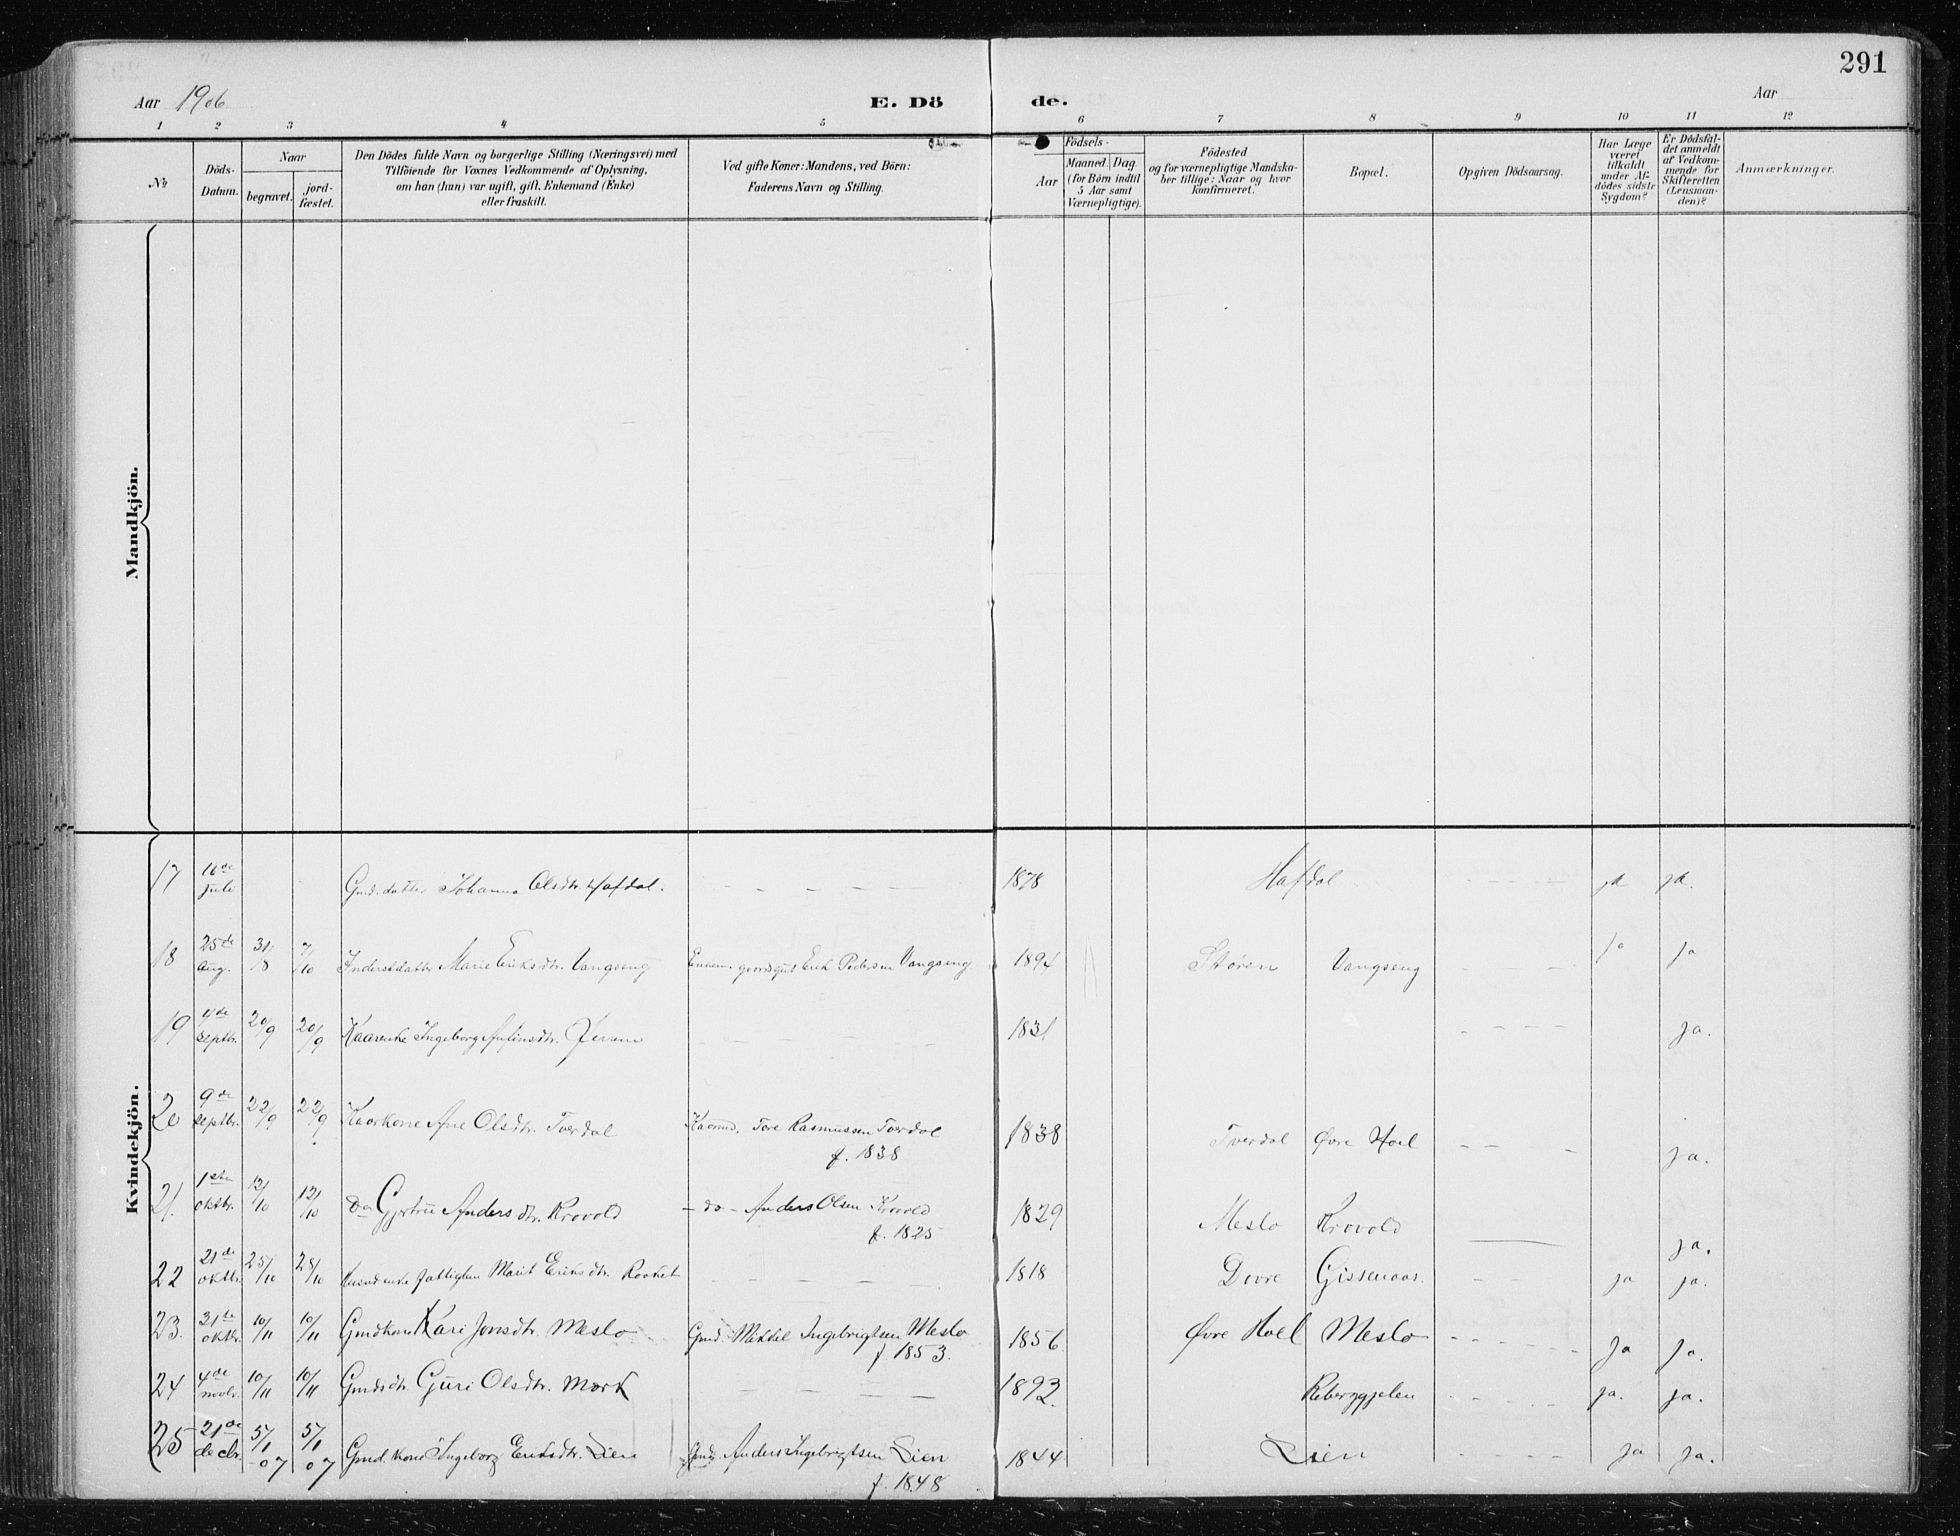 291
Aar 1906
E. Dö de.
Aar
1 2 3 4 5 6 7 8 9 10 11 12
№
Döds-Datum.
Naar
begravet.
jord-fæstet.
Den Dödes fulde Navn og borgerlige Stilling (Næringsvei) med
Tilföiende for Voxnes Vedkommende af Oplysning,
om han (hun) var ugift, gift, Enkemand (Enke)
eller fraskilt.
Ved gifte Koner: Mandens, ved Börn:
Faderens Navn og Stilling.
Födsels-
Aar
Maaned. Dag.
(for Börn indtil
5 Aar samt
Værnepligtige).
Födested
og for værnepligtige Mandska-
ber tillige: Naar og hvor
konfirmeret.
Bopæl.
Opgiven Dödsaarsag.
Har Læge
været
tilkaldt
under Af-
dödes sidste
Sygdom?
Er Dödsfal-
det anmeldt
af Vedkom-
mende for
Skifteretten
(Lensman-
den)?
Anmærkninger.
Mandkjön.
Kvindekjön.
17 16de juli Gmd.datter Johanna Olsdtr. Hafdal. 1878 Hafdal ja ja.
18 25de Aug. 31/8 7/10 Inderstdatter Marie Eriksdtr. Vangseng Erik Pedersen Vangseng 1894 Støren Vangseng ja ja
19 4de septbr. 20/9 20/9 Kaarenke Ingeborg 1831 ja.
20 9de septbr. 22/9 22/9 Kaarkone Ane Olsdtr. Tverdal Kaarmd. Tore Rasmussen Tverdal f. 1838 1838 Tverdal Øvre Hoel ja.
21. 1ste oktbr. 12/10 12/10 Do Gjertru Andersdtr. Krovold - do - Anders Olsen Krovold f. 1825 1829 Meslo Krovold ja.
22 21de oktbr. 25/10 25/10 Marit Eriksdtr. 1818 Dovre Gissenaas. ja ja.
23. 31te oktbr. 10/11 10/11 Gmdkone Kari Jonsdtr. Meslo Gmd. Mikkel Ingebrigtsen Meslo f. 1853. 1856. Øvre Hoel Meslo ja ja.
24 4de novbr. 10/11 10/11 Gmdsdtr. Guri Olsdtr. Mærk 1892. ja. ja.
25 21de decbr. 5/1 -07 5/1 07 Gmd.kone Ingeborg Eriksdtr. Lien Gmd. Anders Ingebrigtsen Lien f. 1848 1844 Lien ja ja.